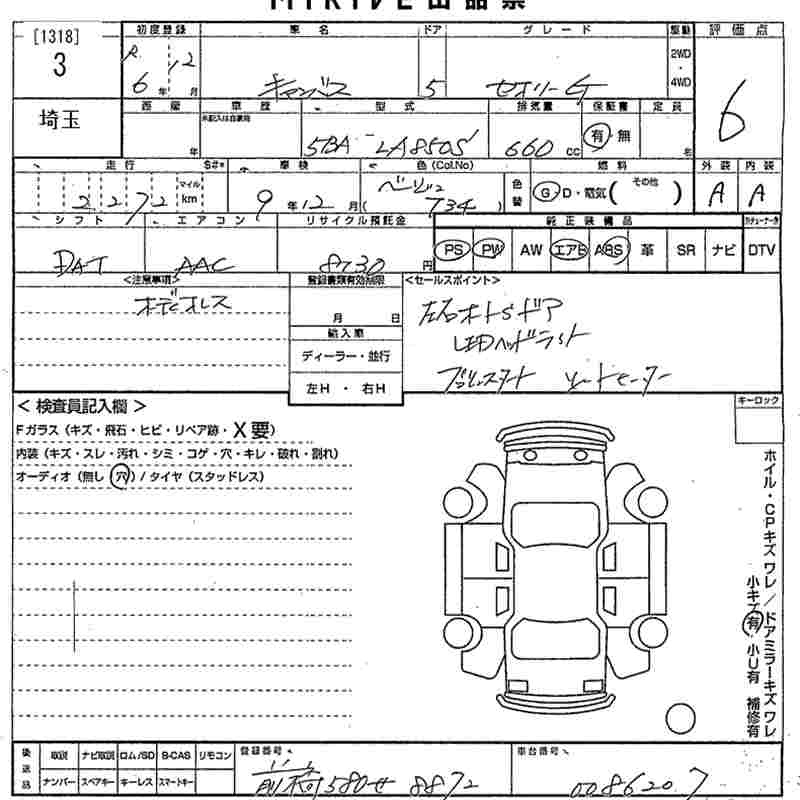 MIRIVE出品票
[1318] 初度登録 車名 ドア グレード 駆動 評価点
3 R.6年12月 キャンバス 5 セオリーG 2WD・4WD 6
埼玉 西暦 年 車歴 未記入は自家用 型式 排気量 保証書 定員
5BA-LA850S 660cc 有・無 名
走行 S#* 車検 色(Col.No) 燃料 外装 内装
2272 マイル km 9年12月 ベージュ(734) 色替 G・D・電気(その他) A A
シフト エアコン リサイクル預託金 純正装備品
DAT AAC 8730円 PS PW AW エアB ABS 革 SR ナビ DTV
<注意事項> 登録書類有効期限 <セールスポイント>
オーディオレス 月 日 左右オートSドア
輸入車 LEDヘッドライト
ディーラー・並行 プッシュスタート シートヒーター
左H・右H
<検査員記入欄> キーロック
Fガラス(キズ・飛石・ヒビ・リペア跡・X要)
内装(キズ・スレ・汚れ・シミ・コゲ・穴・キレ・破れ・割れ)
オーディオ(無し 穴)/タイヤ(スタッドレス)
ホイル・CPキズ ワレ/ドアミラーキズ ワレ
小キズ有 小U有 補修有
後送品 取説 ナビ取説 ロム/SD B-CAS リモコン 登録番号 車台番号
ナンバー スペアキー キーレス スマートキー 前橋580せ 8872 0086207